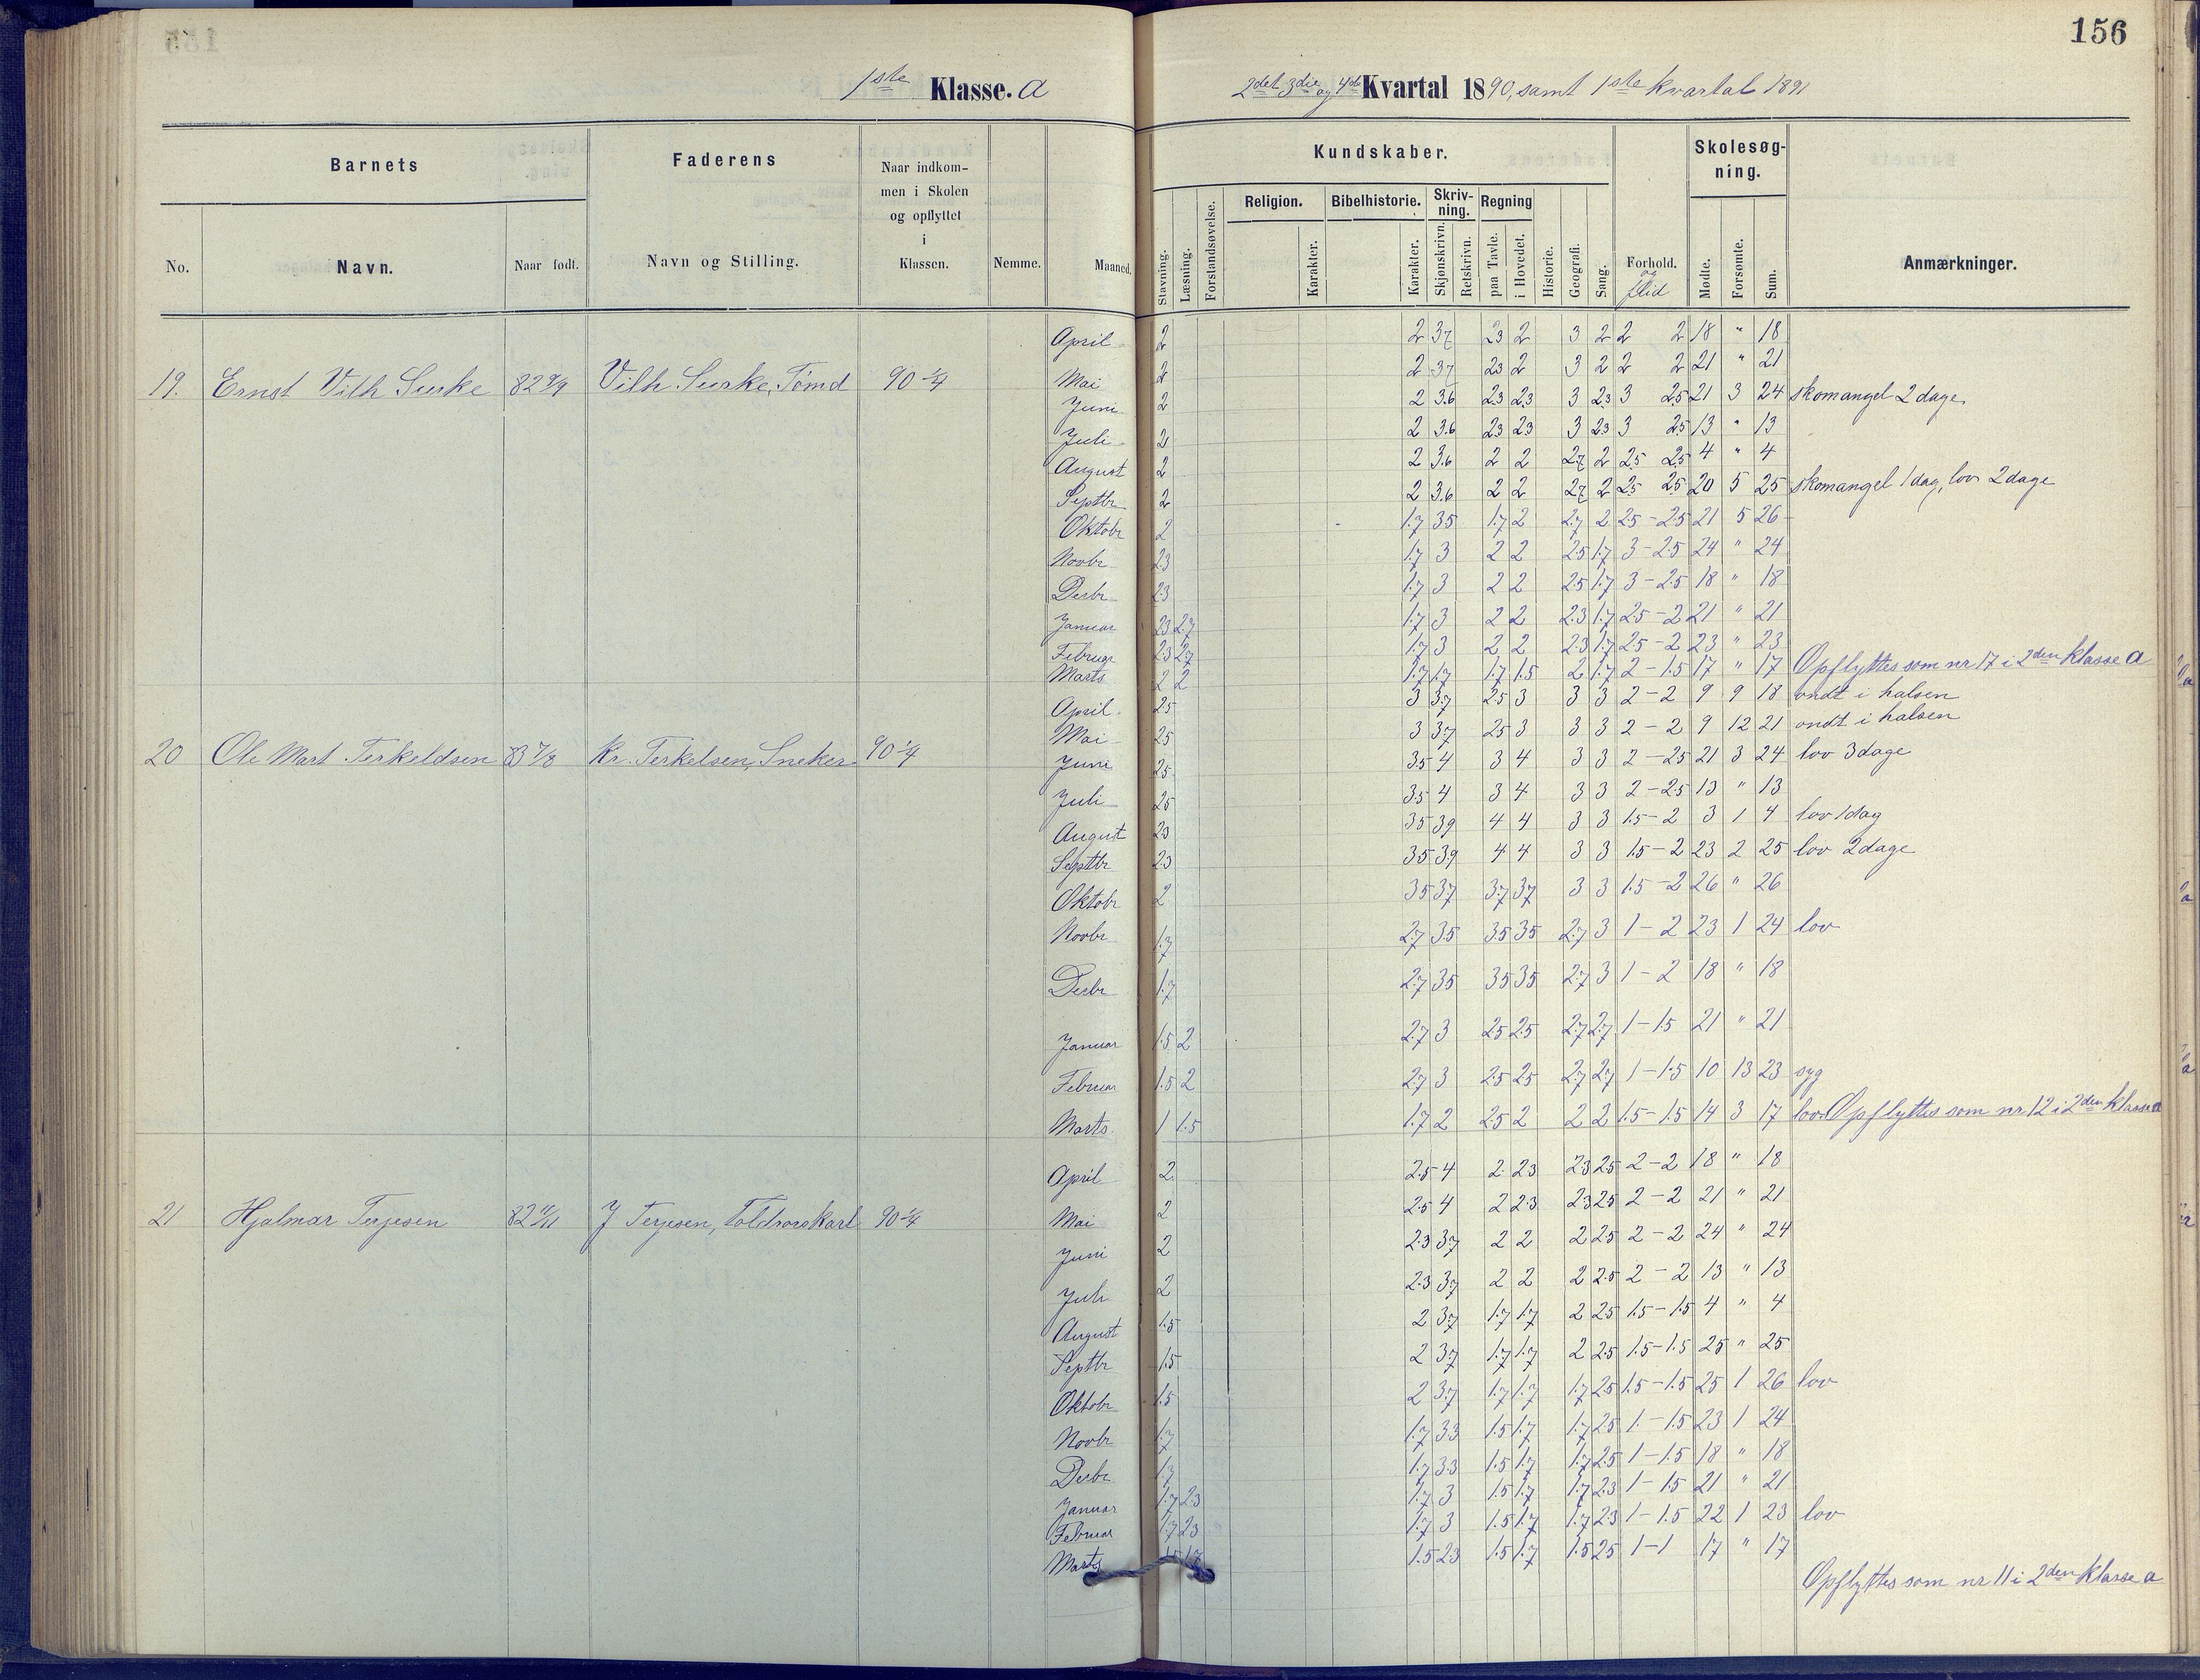 156
1ste Klasse. a
2det 3die og 4de Kvartal 1890, samt 1ste kvartal 1891
Barnets
Faderens
Naar indkommen i Skolen og opflyttet i Klassen.
Nemme.
Maaned.
Kundskaber.
Skolesøgning.
No.
Navn.
Naar født.
Navn og Stilling.
Stavning.
Læsning.
Forstandsøvelse.
Religion.
Karakter.
Bibelhistorie.
Karakter.
Skrivning.
Skjønskrivn.
Retskrivn.
Regning
paa Tavle.
i Hovedet.
Historie.
Geografi.
Sang.
Forhold. og flid
Mødte.
Forsømte.
Sum.
Anmærkninger.
April 2 2 3.7 2.3 2 3 2 2 2 18 " 18
19. Ernst Vilh 90 1/4 Mai 2 2 3.7 2.3 2 3 2 2 2 21 " 21
Juni 2 2 3.6 2.3 2.3 3 2.3 3 2.5 21 3 24 skomangel 2 dage
Juli 2 2 3.6 2.3 2.3 3 2.3 3 2.5 13 " 13
August 2 2 3.6 2 2 2.7 2 2.5 2.5 4 " 4
Septbr 2 2 3.6 2 2 2.7 2 2.5 2.5 20 5 25 skomangel 1 dag, lov 2 dage
Oktobr 2 1.7 3.5 1.7 2 2.7 2 2.5 - 2.5 21 5 26
Novbr 2.3 1.7 3 2 2 2.5 1.7 3 - 2.5 24 " 24
Desbr 2.3 1.7 3 2 2 2.5 1.7 3 - 2.5 18 " 18
Januar 2.3 2.7 1.7 3 2 2 2.3 1.7 2.5 - 2 21 " 21
Februar 2.3 2.7 1.7 3 2 2 2.3 1.7 2.5 - 2 23 " 23
Marts 2 2 1.7 1.7 1.7 1.5 2 1.7 2 - 1.5 17 " 17 Opflyttes som nr 17 i 2den klasse a
April 2.5 3 3.7 2.5 3 3 3 2 - 2 9 9 18 ondt i halsen
Mai 2.5 3 3.7 2.5 3 3 3 2 - 2 9 12 21 ondt i halsen
20 Ole Mart Terkeldsen 83 Kr. Terkelsen, Sneker 90 1/4 Juni 2.5 3.5 4 3 4 3 3 2 - 2.5 21 3 24 lov 3 dage
Juli 2.5 3.5 4 3 4 3 3 2 - 2.5 13 " 13
August 2.3 3.5 3.9 4 4 3 3 1.5 - 2 3 1 4 lov 1 dag
Septbr 2.3 3.5 3.9 4 4 3 3 1.5 - 2 23 2 25 lov 2 dage
Oktobr 2 3.5 3.7 3.7 3.7 3 3 1.5 - 2 26 " 26
Novbr 1.7 2.7 3.5 3.5 3.5 2.7 3 1 - 2 23 1 24 lov
Desbr 1.7 2.7 3.5 3.5 3.5 2.7 3 1 - 2 18 " 18
Januar 1.5 2 2.7 3 2.5 2.5 2.7 2.7 1 - 1.5 21 " 21
Februar 1.5 2 2.7 3 2.5 2.5 2.7 2.7 1 - 1.5 10 13 23 syg
Marts 1 1.5 1.7 2 2.5 2 2 2 1.5 - 1.5 14 3 17 lov. Opflyttes som nr 12 i 2den klasse a
April 2 2.5 4 2 2.3 2.3 2.5 2 - 2 18 " 18
21 Hjalmar Terjesen 82 11/11 J Terjesen, Toldrorskarl 90 1/4 Mai 2 2.5 4 2 2.3 2.3 2.5 2 - 2 21 " 21
Juni 2 2.3 3.7 2 2 2 2.5 2 - 2 24 " 24
Juli 2 2.3 3.7 2 2 2 2.5 2 - 2 13 " 13
August 1.5 2 3.7 1.7 1.7 2 2.5 1.5 - 1.5 4 " 4
Septbr 1.5 2 3.7 1.7 1.7 2 2.5 1.5 - 1.5 25 " 25
Oktobr 1.5 2 3.7 1.7 1.7 1.7 2.5 1.5 - 1.5 25 1 26 lov
Novbr 1.7 1.7 3.3 1.5 1.7 1.7 2.5 1 - 1.5 23 1 24
Desbr 1.7 1.7 3.3 1.5 1.7 1.7 2.5 1 - 1.5 18 " 18
Januar 1.7 2.3 1.7 3 1.5 1.7 1.7 2.3 1 - 1.5 21 " 21
Februar 1.7 2.3 1.7 3 1.5 1.7 1.7 2.3 1 - 1.5 22 1 23 lov
Marts 1.5 2.3 1.5 1.7 1.5 2.5 1 - 1 17 " 17
Opflyttes som nr 11 i 2den klasse a